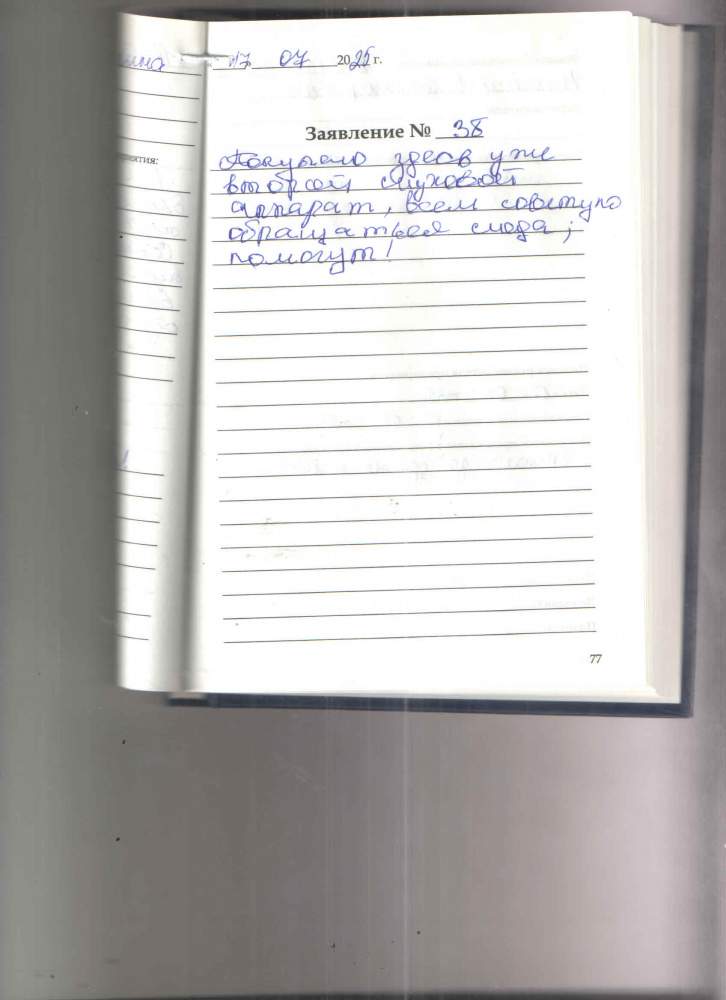 17 07 2025 г.
Заявление № 38
Покупаю здесь уже
второй слуховой
аппарат, всем советую
обращаться сюда,
помогут!
77